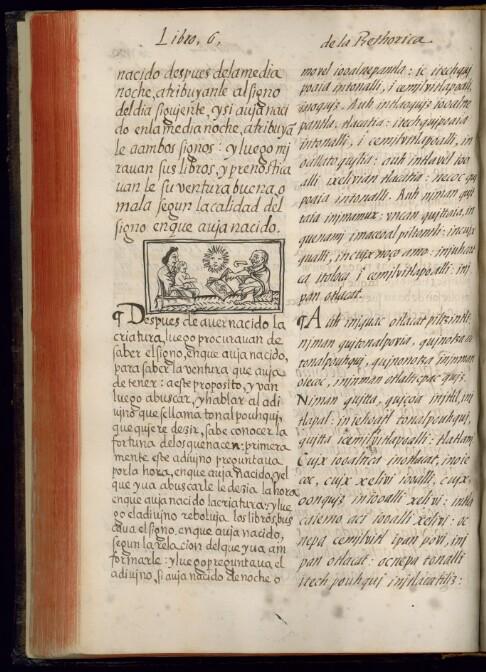 Libro, 6,
de la Rethorica
nacido despues dela media
noche, atribuyanle al signo
del dia siguiente, y si auja naci
do enla media noche, atribuya
le a ambos signos: y luego mj
rauan sus libros, y prenostica
uan le su ventura buena, o
mala segun la calidad del
signo en que auja nacido.
¶ Despues de auer nacido la
criatura, luego procurauan de
saber el signo, en que auja nacido,
para saber la ventura que auja
de tener: a este proposito, yvan
luego abuscar, y hablar al adi
ujno que se llama tonalpouhquj,
que qujere dezir, sabe conocer la
fortuna delos que nacen: primera
mente este adiujno preguntaua
por la hora, en que auja nacido, y el
que yua abuscarle le dezia la hora
en que auja nacido la criatura: y lue
go el adiujno reboluja los libros, bus
caua el signo, en que auja nacido,
segun la relacion del que yua a in
formarle: y luego preguntaua, el
adiujno, si auja nacido de noche o
iooalnepantla: ic itechquj
poaia intonalli, i cemjlvitlapoalli,
Auh intlacujz iooalne
pantla, tlacatia: itechqujpoaia
intonalli, i cemilvitlapoalli, in
auh intlavel ioo
alli xelivian tlacatia: necoc quj
poaia intonalli. Auh njman qujt
taia injnamux: vncan qujttaia, in
quenamj imaceoal pitzontli: incujx
qualli, incujx noço amo: injuhca
ca itoloca i cemilvitlapoalli: inj
pan otlacat.
¶ Auh iniquac otlacat piltzintli:
njman qujtonalpovia, qujnotza in
tonalpouhquj, qujnonotza injnman
otlacat, injnman otlalticpac qujz.
Njman qujtta, quiçoa injtlil, inj
tlapal: in iehoatl tonalpouhquj,
qujtta icemjlvitlapoalli: tlatlanj,
Cujx iooaltica inotlacat, in
cujx xelivi iooalli, cujx
oonqujz iniooalli xelivi: intla
aci iooalli xelivi: oc
nepa cemilvitl ipan povi, inj
pan otlacat: ocnepa tonalli
itech pouhquj injtlacatiliz: